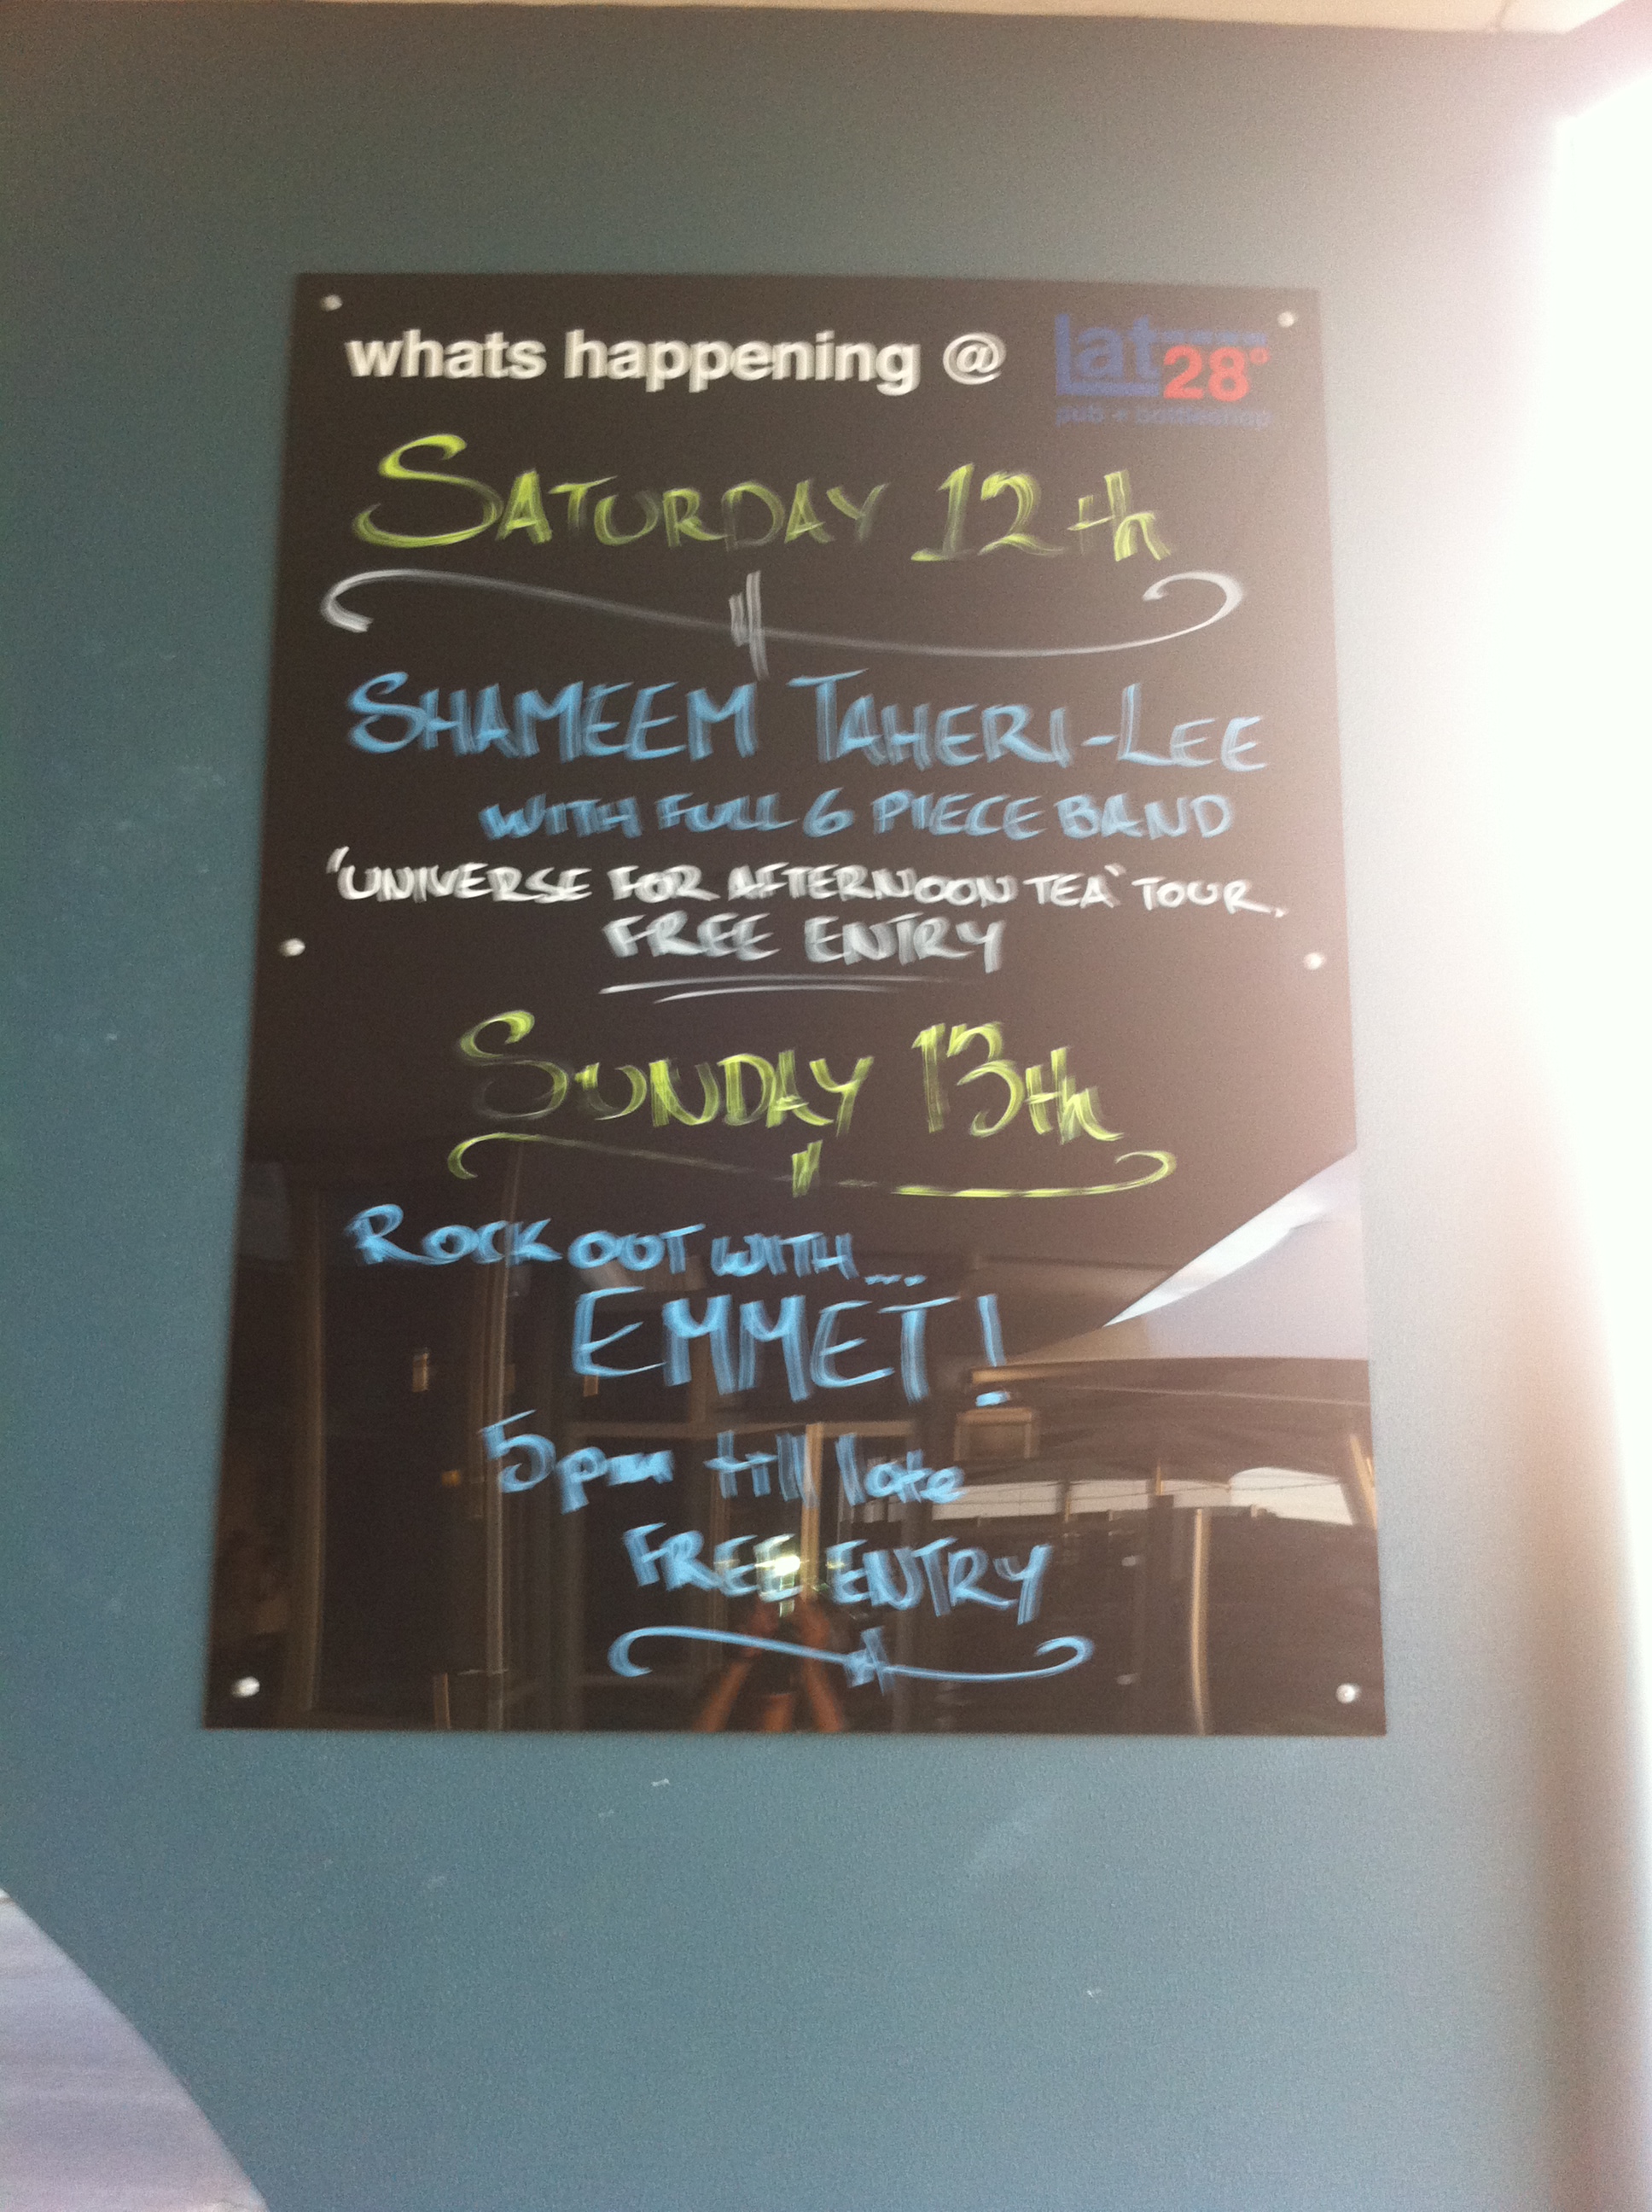 whats happening @ Lat 28°
pub + bottleshop
SATURDAY 12th
SHAMEEM TAHERI-LEE
WITH FULL 6 PIECE BAND
'UNIVERSE FOR AFTERNOON TEA' TOUR.
FREE ENTRY
SUNDAY 13th
ROCK OUT WITH...
EMMET!
5pm till late
FREE ENTRY